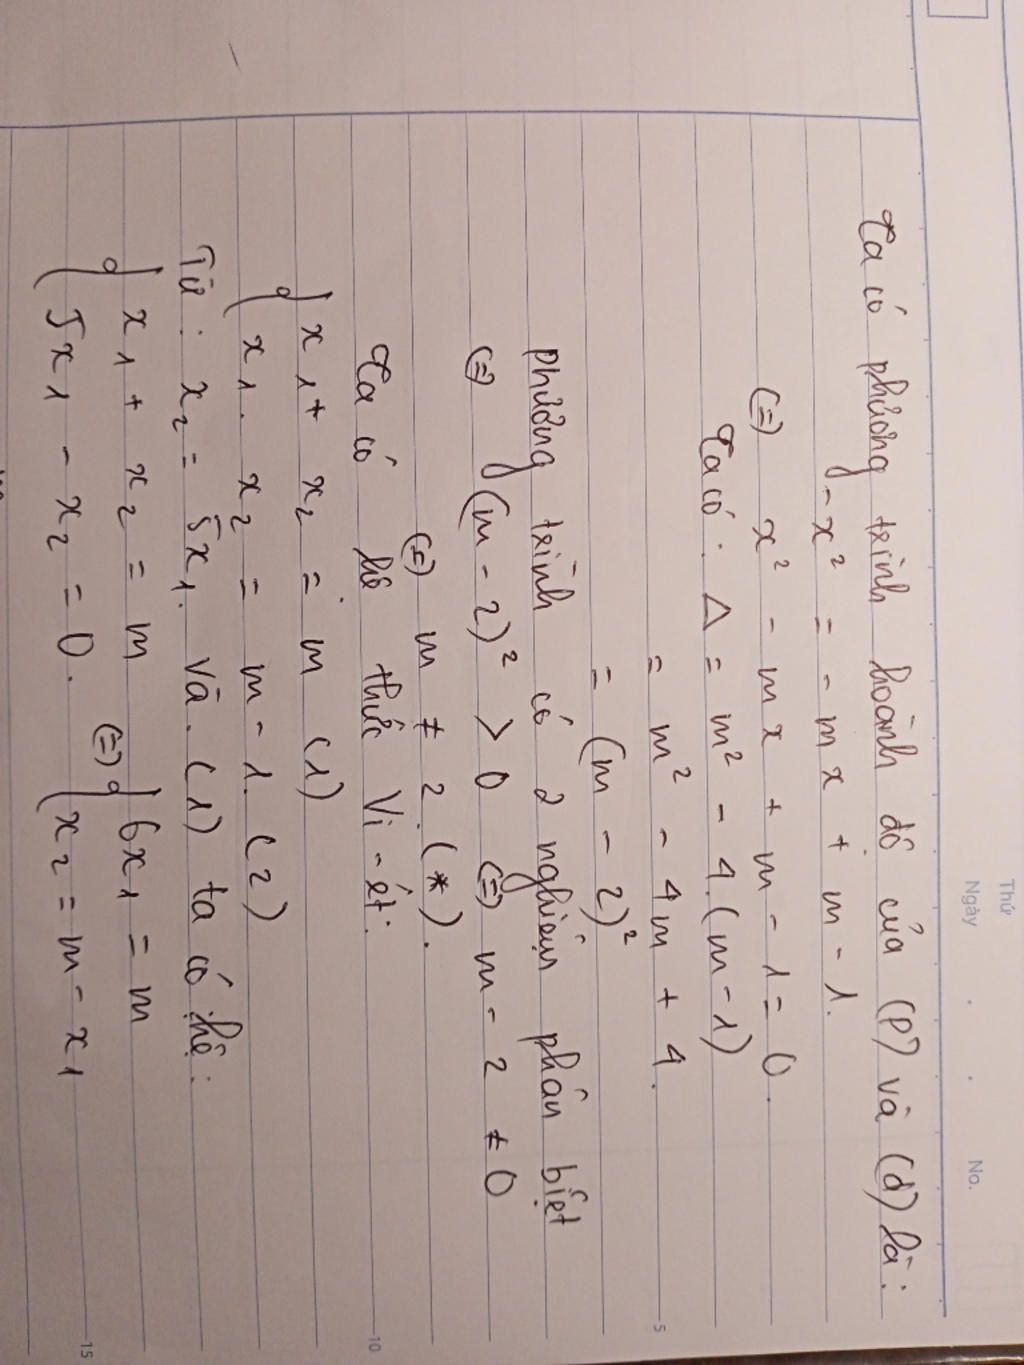 Thứ
Ngày . . No.
Ta có phương trình hoành độ của (P) và (d) là:
-x² = -mx + m-1.
(=) x² - mx + m - 1 = 0.
Ta có: Δ = m² - 4.(m-1)
= m² - 4m + 4.
5
= (m - 2)²
phương trình có 2 nghiệm phân biệt
(=) (m-2)² > 0 (=) m - 2 ≠ 0
(=) m ≠ 2 (*).
Ta có hê thức Vi-ét:
10
{ x₁ + x₂ = m (1)
{ x₁ . x₂ = m-1. (2)
Từ: x₂ = 5x₁. Và. (1) ta có hệ:
{ x₁ + x₂ = m (=) { 6x₁ = m
{ 5x₁ - x₂ = 0. { x₂ = m - x₁
15